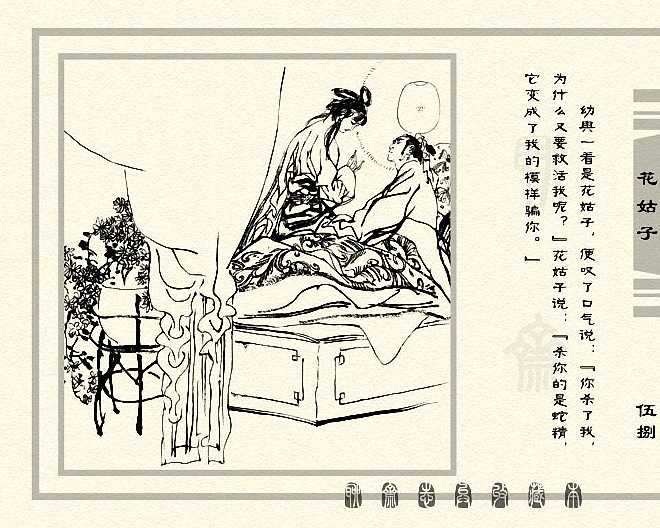 幼舆一看是花姑子，便叹了口气说：『你杀了我，
为什么又要救活我呢？』花姑子说：『杀你的是蛇精，
它变成了我的模样骗你。』
花姑子
伍捌
聊斋志异收藏本